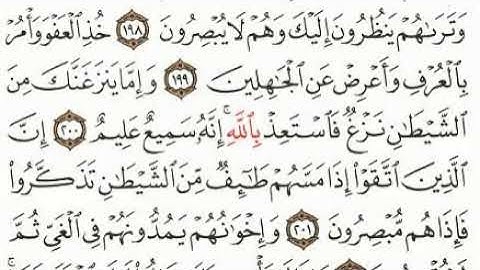 وَتَرَىٰهُمْ يَنظُرُونَ إِلَيْكَ وَهُمْ لَا يُبْصِرُونَ ١٩٨ خُذِ ٱلْعَفْوَ وَأْمُرْ
بِٱلْعُرْفِ وَأَعْرِضْ عَنِ ٱلْجَٰهِلِينَ ١٩٩ وَإِمَّا يَنزَغَنَّكَ مِنَ
ٱلشَّيْطَٰنِ نَزْغٌ فَٱسْتَعِذْ بِٱللَّهِ ۚ إِنَّهُۥ سَمِيعٌ عَلِيمٌ ٢٠٠ إِنَّ
ٱلَّذِينَ ٱتَّقَوْا۟ إِذَا مَسَّهُمْ طَٰٓئِفٌ مِّنَ ٱلشَّيْطَٰنِ تَذَكَّرُوا۟
فَإِذَا هُم مُّبْصِرُونَ ٢٠١ وَإِخْوَٰنُهُمْ يَمُدُّونَهُمْ فِى ٱلْغَىِّ ثُمَّ